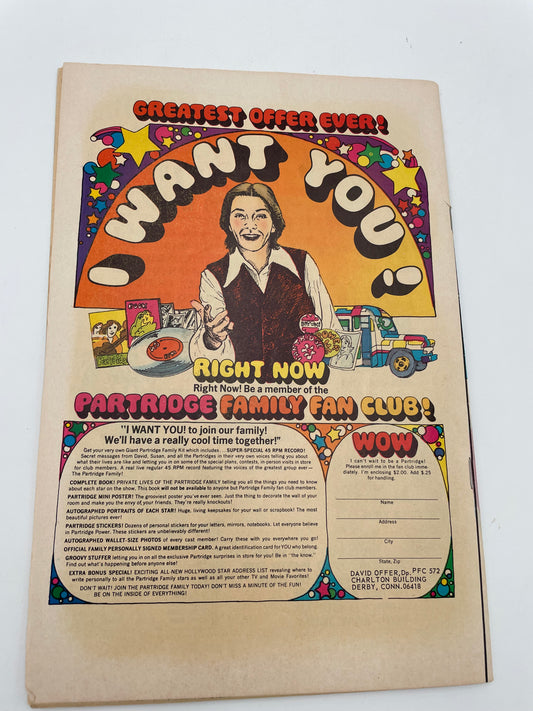 GREATEST OFFER EVER!
I WANT YOU!
RIGHT NOW
Right Now! Be a member of the
PARTRIDGE FAMILY FAN CLUB!
"I WANT YOU! to join our family!
We'll have a really cool time together!"
Get your very own Giant Partridge Family Kit which includes... SUPER-SPECIAL 45 RPM RECORD!
Secret messages from David, Susan, and all the Partridges in their very own voices telling you about
what their lives are like and letting you in on some of the special plans, contests, in person visits in store
for club members. A real live regular 45 RPM record featuring the voices of the greatest group ever —
The Partridge Family!
COMPLETE BOOK! PRIVATE LIVES OF THE PARTRIDGE FAMILY telling you all the things you need to know
about each star on the show. This book will not be available to anyone but Partridge Family fan club members.
PARTRIDGE MINI POSTER! The grooviest poster you've ever seen. Just the thing to decorate the wall of your
room and make you the envy of your friends. They're really knockouts!
AUTOGRAPHED PORTRAITS OF EACH STAR! Huge, living keepsakes for your wall or scrapbook! The most
beautiful pictures ever!
PARTRIDGE STICKERS! Dozens of personal stickers for your letters, mirrors, notebooks. Let everyone believe
in Partridge Power. These stickers are unbelievably different!
AUTOGRAPHED WALLET-SIZE PHOTOS of every cast member! Carry these with you everywhere you go!
OFFICIAL FAMILY PERSONALLY SIGNED MEMBERSHIP CARD. A great identification card for YOU who belong.
GROOVY STUFFER letting you in on all the exclusive Partridge surprises in store for you! Be in "the know."
Find out what's happening before anyone else!
EXTRA BONUS SPECIAL! EXCITING ALL NEW HOLLYWOOD STAR ADDRESS LIST revealing where to
write personally to all the Partridge Family stars as well as all your other TV and Movie Favorites!
DON'T WAIT! JOIN THE PARTRIDGE FAMILY TODAY! DON'T MISS A MINUTE OF THE FUN!
BE ON THE INSIDE OF EVERYTHING!
WOW
I can't wait to be a Partridge!
Please enroll me in the fan club imme-
diately. I'm enclosing $2.00. Add $.25
for handling.
Name
Address
City
State, Zip
DAVID OFFER, Dp. PFC 572
CHARLTON BUILDING
DERBY, CONN. 06418